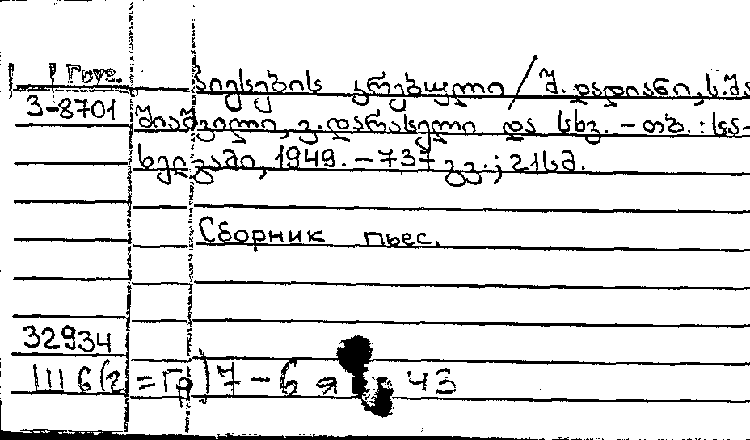 Груз.
პიესების კრებული / შ. დადიანი, ს. შა-
3-8701
შიაშვილი, ვ. დარასელი და სხვ. - თბ. : სა-
ხელგამი, 1949. - 737 გვ.; 21 სმ.
Сборник пьес.
32934
III 6(2=Гр)7-6 я 43